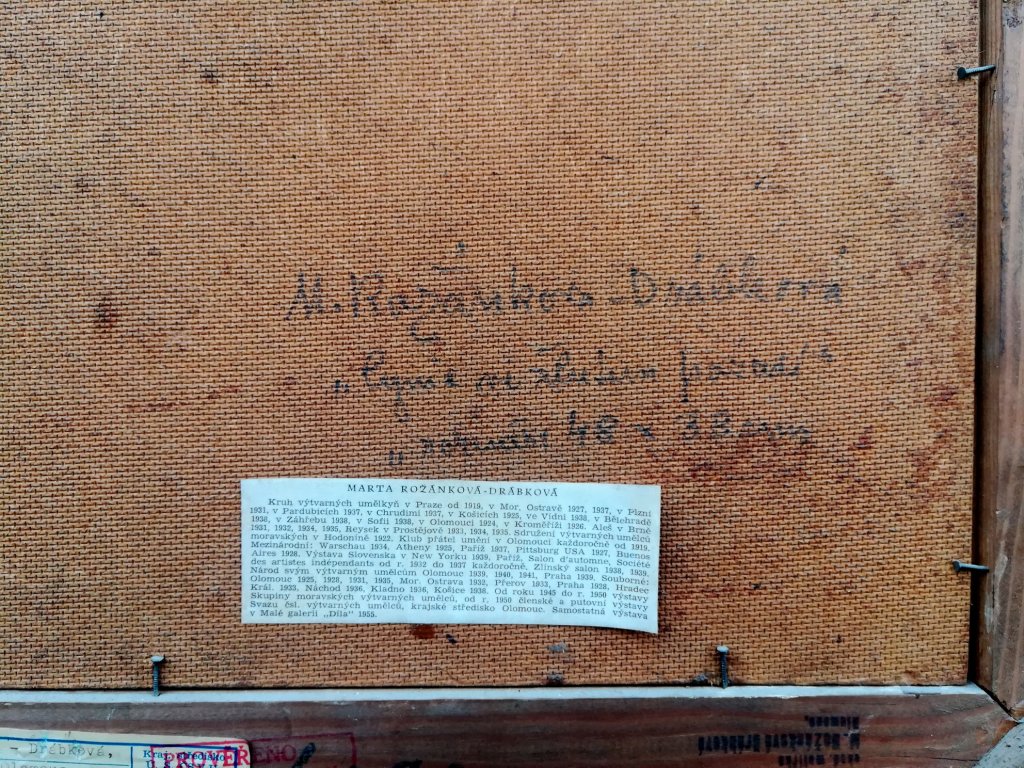 M. Rožánková-Drábková
48 x 38 cm
MARTA ROŽÁNKOVÁ-DRÁBKOVÁ
Kruh výtvarných umělkyň v Praze od 1919, v Mor. Ostravě 1927, 1937, v Plzni
1931, v Pardubicích 1937, v Chrudimi 1937, v Košicích 1925, ve Vídni 1938, v Bělehradě
1938, v Záhřebu 1938, v Sofii 1938, v Olomouci 1924, v Kroměříži 1926. Aleš v Brně
1931, 1932, 1934, 1935, Reysek v Prostějově 1933, 1934, 1935. Sdružení výtvarných umělců
moravských v Hodoníně 1922. Klub přátel umění v Olomouci každoročně od 1919.
Mezinárodní: Warschau 1934, Atheny 1925, Paříž 1937, Pittsburg USA 1927, Buenos
Aires 1928. Výstava Slovenska v New Yorku 1939, Paříž, Salon d'automne, Société
des artistes indépendants od r. 1932 do 1937 každoročně, Zlínský salon 1938, 1939.
Národ svým výtvarným umělcům Olomouc 1939, 1940, 1941, Praha 1939. Souborné:
Olomouc 1925, 1928, 1931, 1935, Mor. Ostrava 1932, Přerov 1933, Praha 1928, Hradec
Král. 1935, Náchod 1936, Kladno 1936, Košice 1938. Od roku 1945 do r. 1950 výstavy
Skupiny moravských výtvarných umělců, od r. 1950 členské a putovní výstavy
Svazu čsl. výtvarných umělců, krajské středisko Olomouc. Samostatná výstava
v Malé galerii „Díla" 1955.
- Drábková,
Kraj. středisko
PROVĚŘENO
akad. malířka
M. Rožánková Drábková
Olomouc,